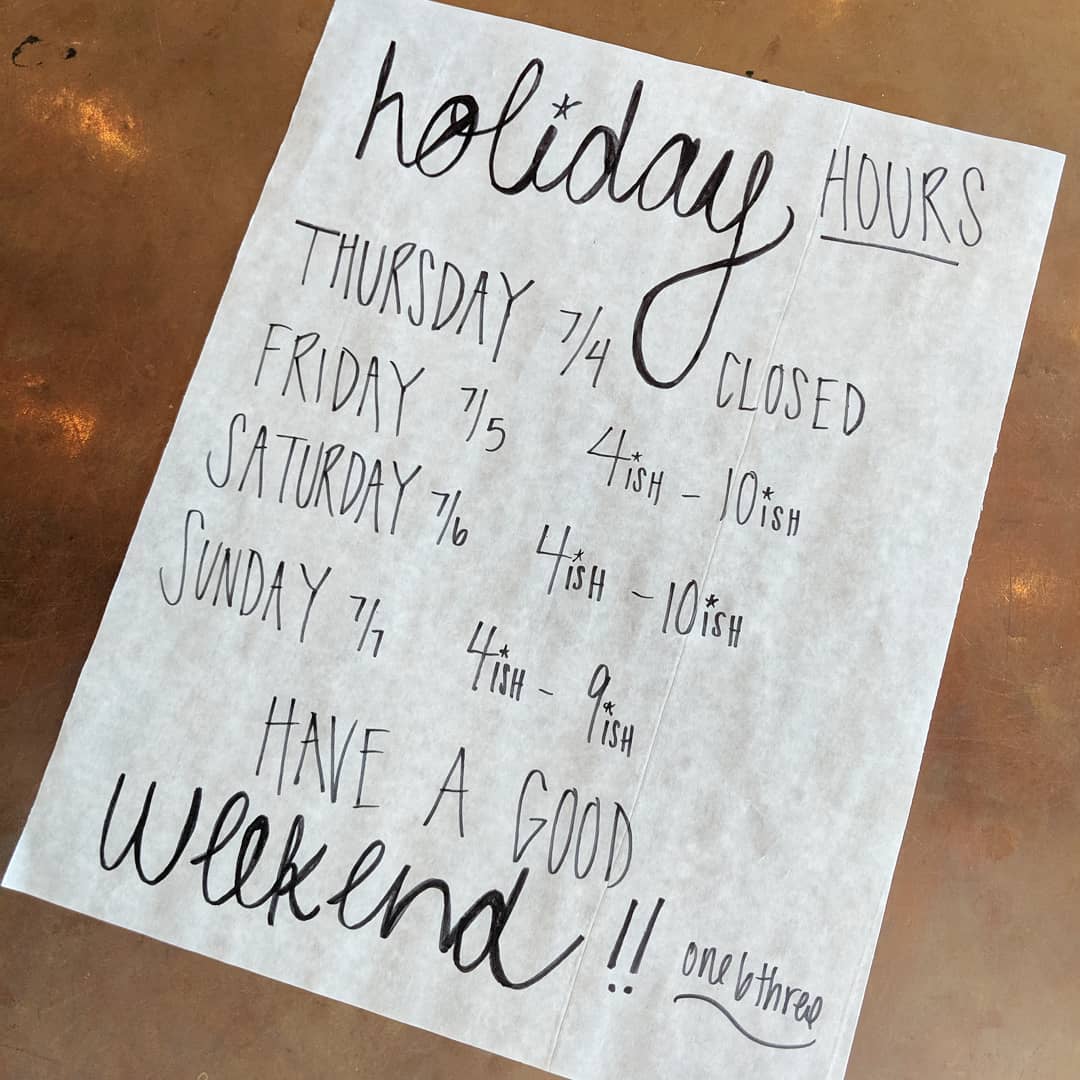 holiday HOURS
THURSDAY 7/4 CLOSED
FRIDAY 7/5 4ISH - 10ISH
SATURDAY 7/6 4ISH - 10ISH
SUNDAY 7/7 4ISH - 9ISH
HAVE A GOOD
weekend !!
one6three